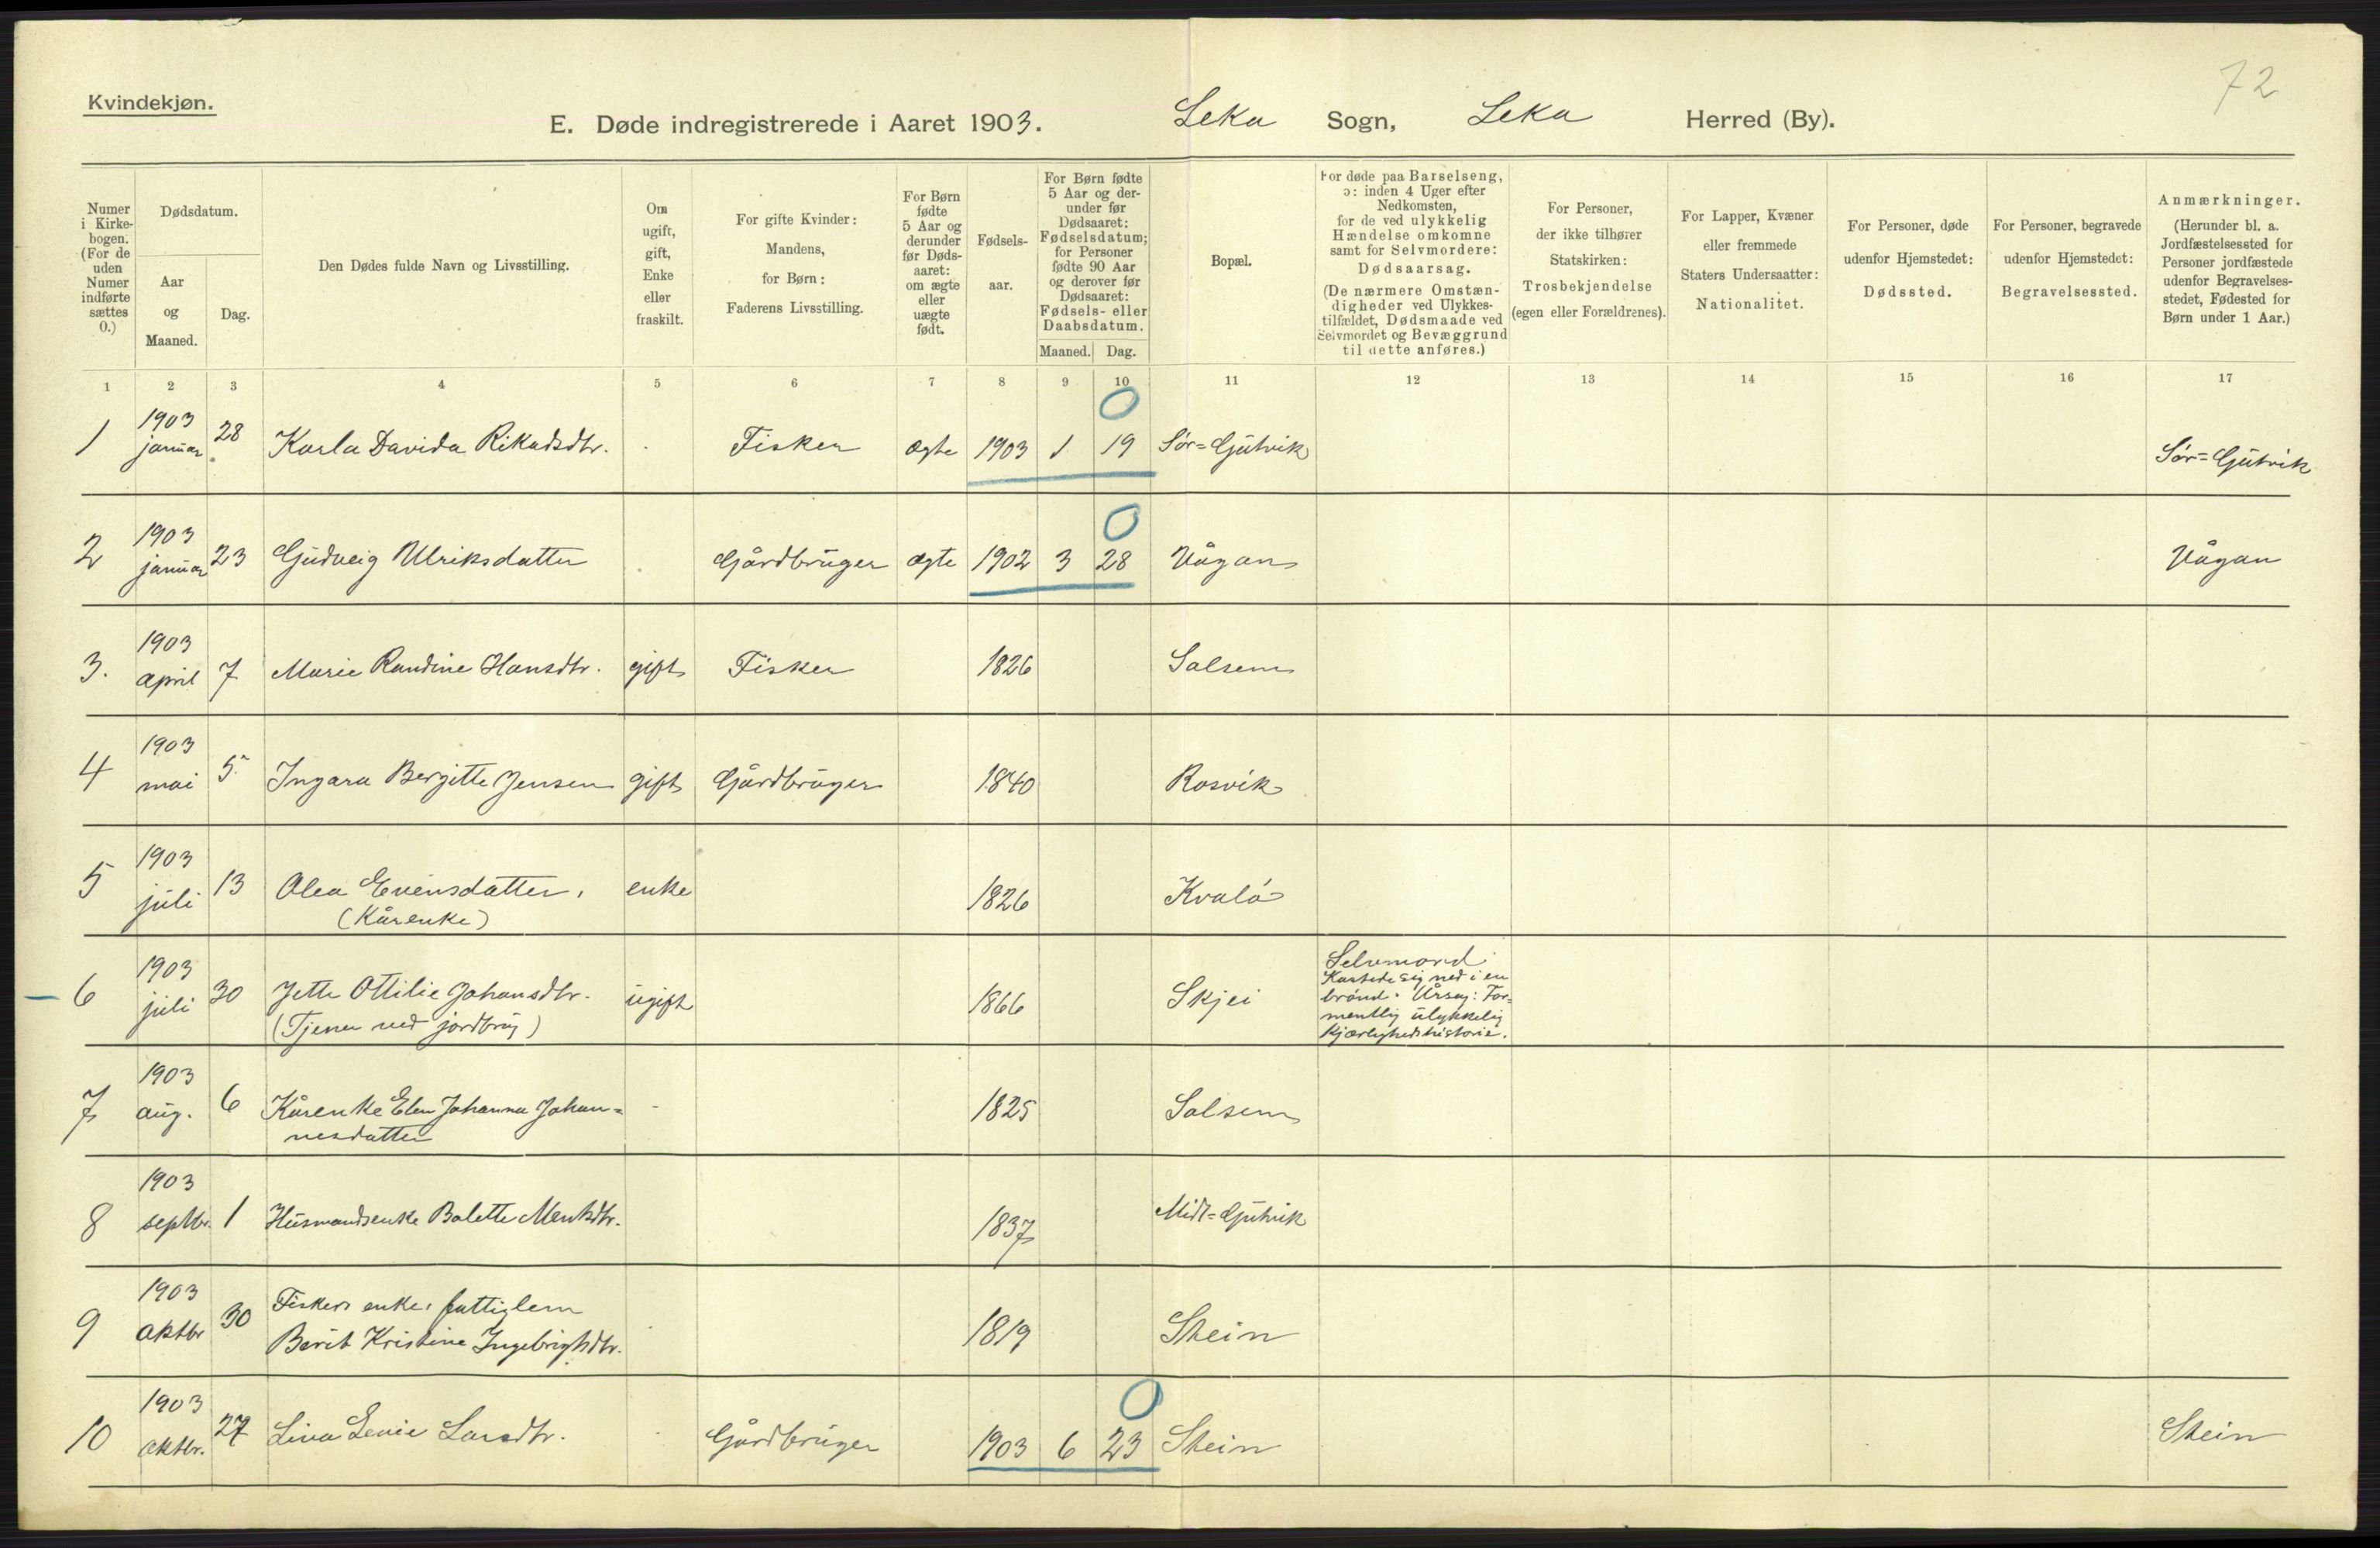 72
Kvindekjøn.
E. Døde indregistrerede i Aaret 1903. Leka Sogn, Leka Herred (By).
Numer i Kirke-bogen. (For de uden Numer indførte sættes 0.)
Dødsdatum.
Aar og Maaned.
Dag.
Den Dødes fulde Navn og Livsstilling.
Om ugift, gift, Enke eller fraskilt.
For gifte Kvinder: Mandens, for Børn: Faderens Livsstilling.
For Børn fødte 5 Aar og derunder før Døds-aaret: om ægte eller uægte født.
Fødsels-aar.
For Børn fødte 5 Aar og der-under før Dødsaaret: Fødselsdatum; for Personer fødte 90 Aar og derover før Dødsaaret: Fødsels- eller Daabsdatum.
Maaned. Dag.
Bopæl.
For døde paa Barselseng, ɔ: inden 4 Uger efter Nedkomsten, for de ved ulykkelig Hændelse omkomne samt for Selvmordere: Dødsaarsag. (De nærmere Omstæn-digheder ved Ulykkes-tilfældet, Dødsmaade ved Selvmordet og Bevæggrund til dette anføres.)
For Personer, der ikke tilhører Statskirken: Trosbekjendelse (egen eller Forældrenes).
For Lapper, Kvæner eller fremmede Staters Undersaatter: Nationalitet.
For Personer, døde udenfor Hjemstedet: Dødssted.
For Personer, begravede udenfor Hjemstedet: Begravelsessted.
Anmærkninger. (Herunder bl. a. Jordfæstelsessted for Personer jordfæstede udenfor Begravelses-stedet, Fødested for Børn under 1 Aar.)
1 2 3 4 5 6 7 8 9 10 11 12 13 14 15 16 17
1 1903 januar 28 Karla Davida Rikadsdtr. Fisker ægte 1903 1 19 0 Sör=Gjutvik Sör=Gjutvik
2 1903 januar 23 Gudveig Ulriksdatter Gårdbruger ægte 1902 3 28 0 Vågan Vågan
3. 1903 april 7 Marie Randine Hansdtr. gift Fisker 1826 Salsem
4 1903 mai 5. Ingara Bergitte Jensen gift Gårdbruger 1840 Rosvik
5 1903 juli 13 Olea Evensdatter. enke 1826 Kvalö
(Kårenke)
6 1903 juli 30 Jette Ottilie Johansdtr. ugift 1866 Skjei
(Tjener ved jordbrug)
Selvmord.
Kastede sig ned i en
brönd. Årsag: For=
mentlig ulykkelig
kjærlighedshistorie.
7 1903 aug. 6 Kårenke Elen Johanna Johan= 1825 Salsem
nesdatter
8 1903 septbr. 1 Husmandsenke Balette Mentsdtr. 1837 Midt=Gjutvik
9 1903 oktbr 30 Fiskers enke, fattiglem
Berit Kristine Ingebrigtsdtr. 1819 Stein
10 1903 oktbr. 27 Lina Lenie Larsdtr. Gårdbruger 1903 6 23 0 Stein Stein